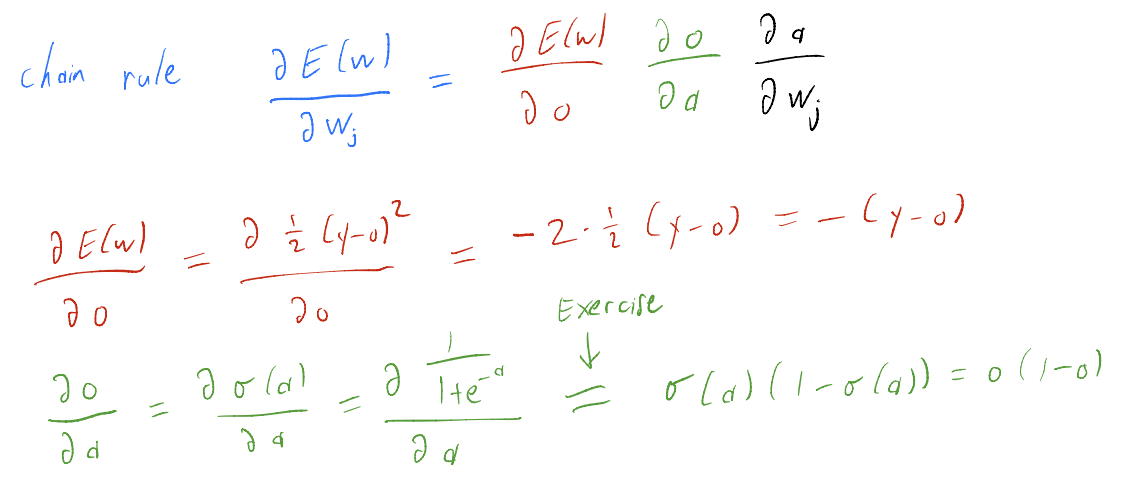 chain rule ∂E(w)/∂w_j = ∂E(w)/∂o ∂o/∂a ∂a/∂w_j
∂E(w)/∂o = ∂ ½ (y-o)²/∂o = -2·½ (y-o) = -(y-o)
Exercise
↓
∂o/∂a = ∂σ(a)/∂a = ∂ 1/(1+e^{-a})/∂a = σ(a)(1-σ(a)) = o(1-o)